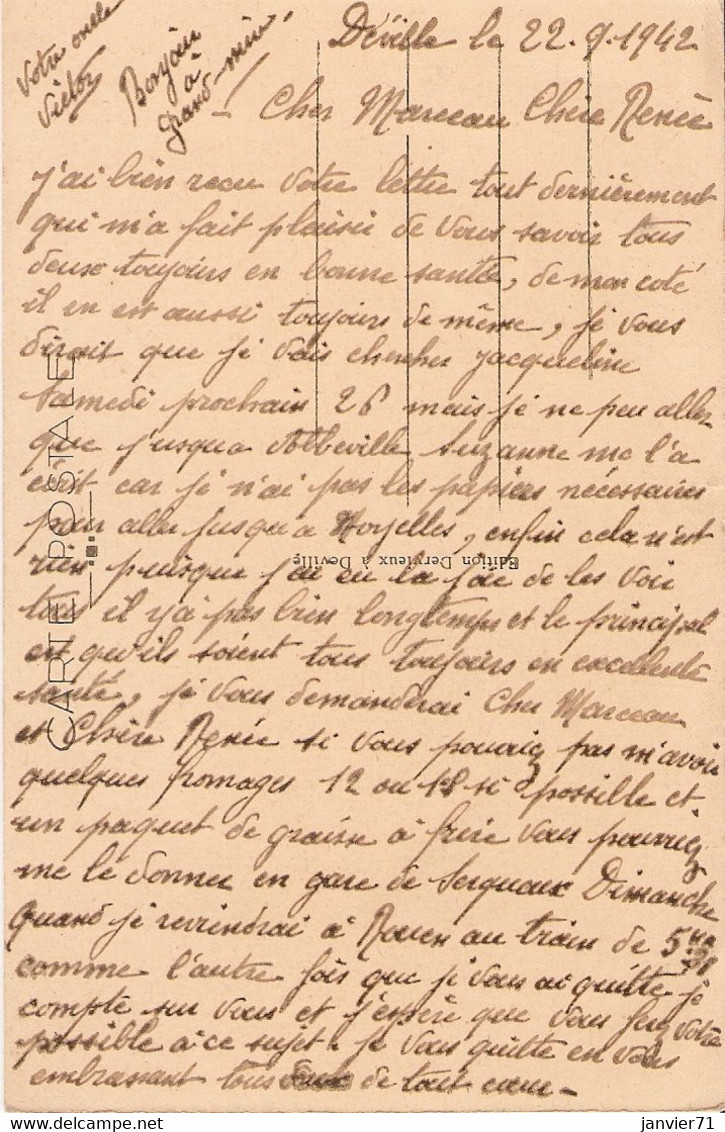 Déville le 22.9.1942
Cher Marceau Chère Renée
j'ai bien recu votre lettre tout dernièrement
qui m'a fait plaisir de vous savoir tous
deux toujours en bonne santée, de mon coté
il en est aussi toujours de même, je vous
dirait que je vais chercher jacqueline
samedi prochain 26 mais je ne peu aller
que jusqua Abbeville Suzanne me l'a
écrit car je n'ai pas les papiers nécessaires
pour aller jusqu'a Noyelles, enfin cela n'est
rien puisque j'ai eu la joie de les voir
tous il y a pas bien longtemps et le principal
est qu'ils soient tous toujours en excellente
santé, je vous demanderai Cher Marceau
et Chère Renée si vous pouriez pas m'avoir
quelques fromages 12 ou 18 si possible et
un paquet de graisse à frire vous pourriez
me le donner en gare de Serqueux Dimanche
quand je reviendrai à Rouen au train de 5
comme l'autre fois que je vous ai quitté je
compte sur vous et j'espère que vous ferez votre
possible à ce sujet. je vous quitte en vous
embrassant tous de tout cœur -
Votre oncle
Victor
Bonjour
à
grand-mère!
CARTE POSTALE
Edition Dervieux à Deville
janvier71